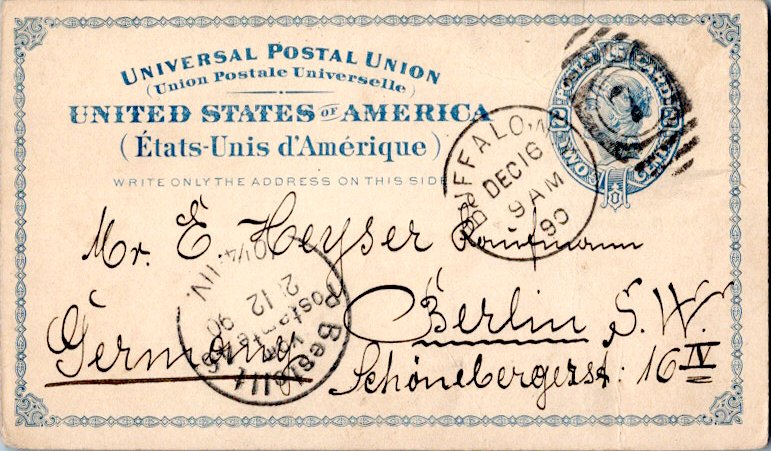 UNIVERSAL POSTAL UNION
(Union Postale Universelle)
UNITED STATES OF AMERICA
(États-Unis d'Amérique)
WRITE ONLY THE ADDRESS ON THIS SIDE
POSTAL CARD
TWO CENTS
BUFFALO, N
DEC 16
9 AM
90
Mr. E. Heyser Kaufmann
Berlin S.W.
Germany
Schönebergerst: 16 IV
Bestellt
vom
Postamte
12
90
10 1/4
V.